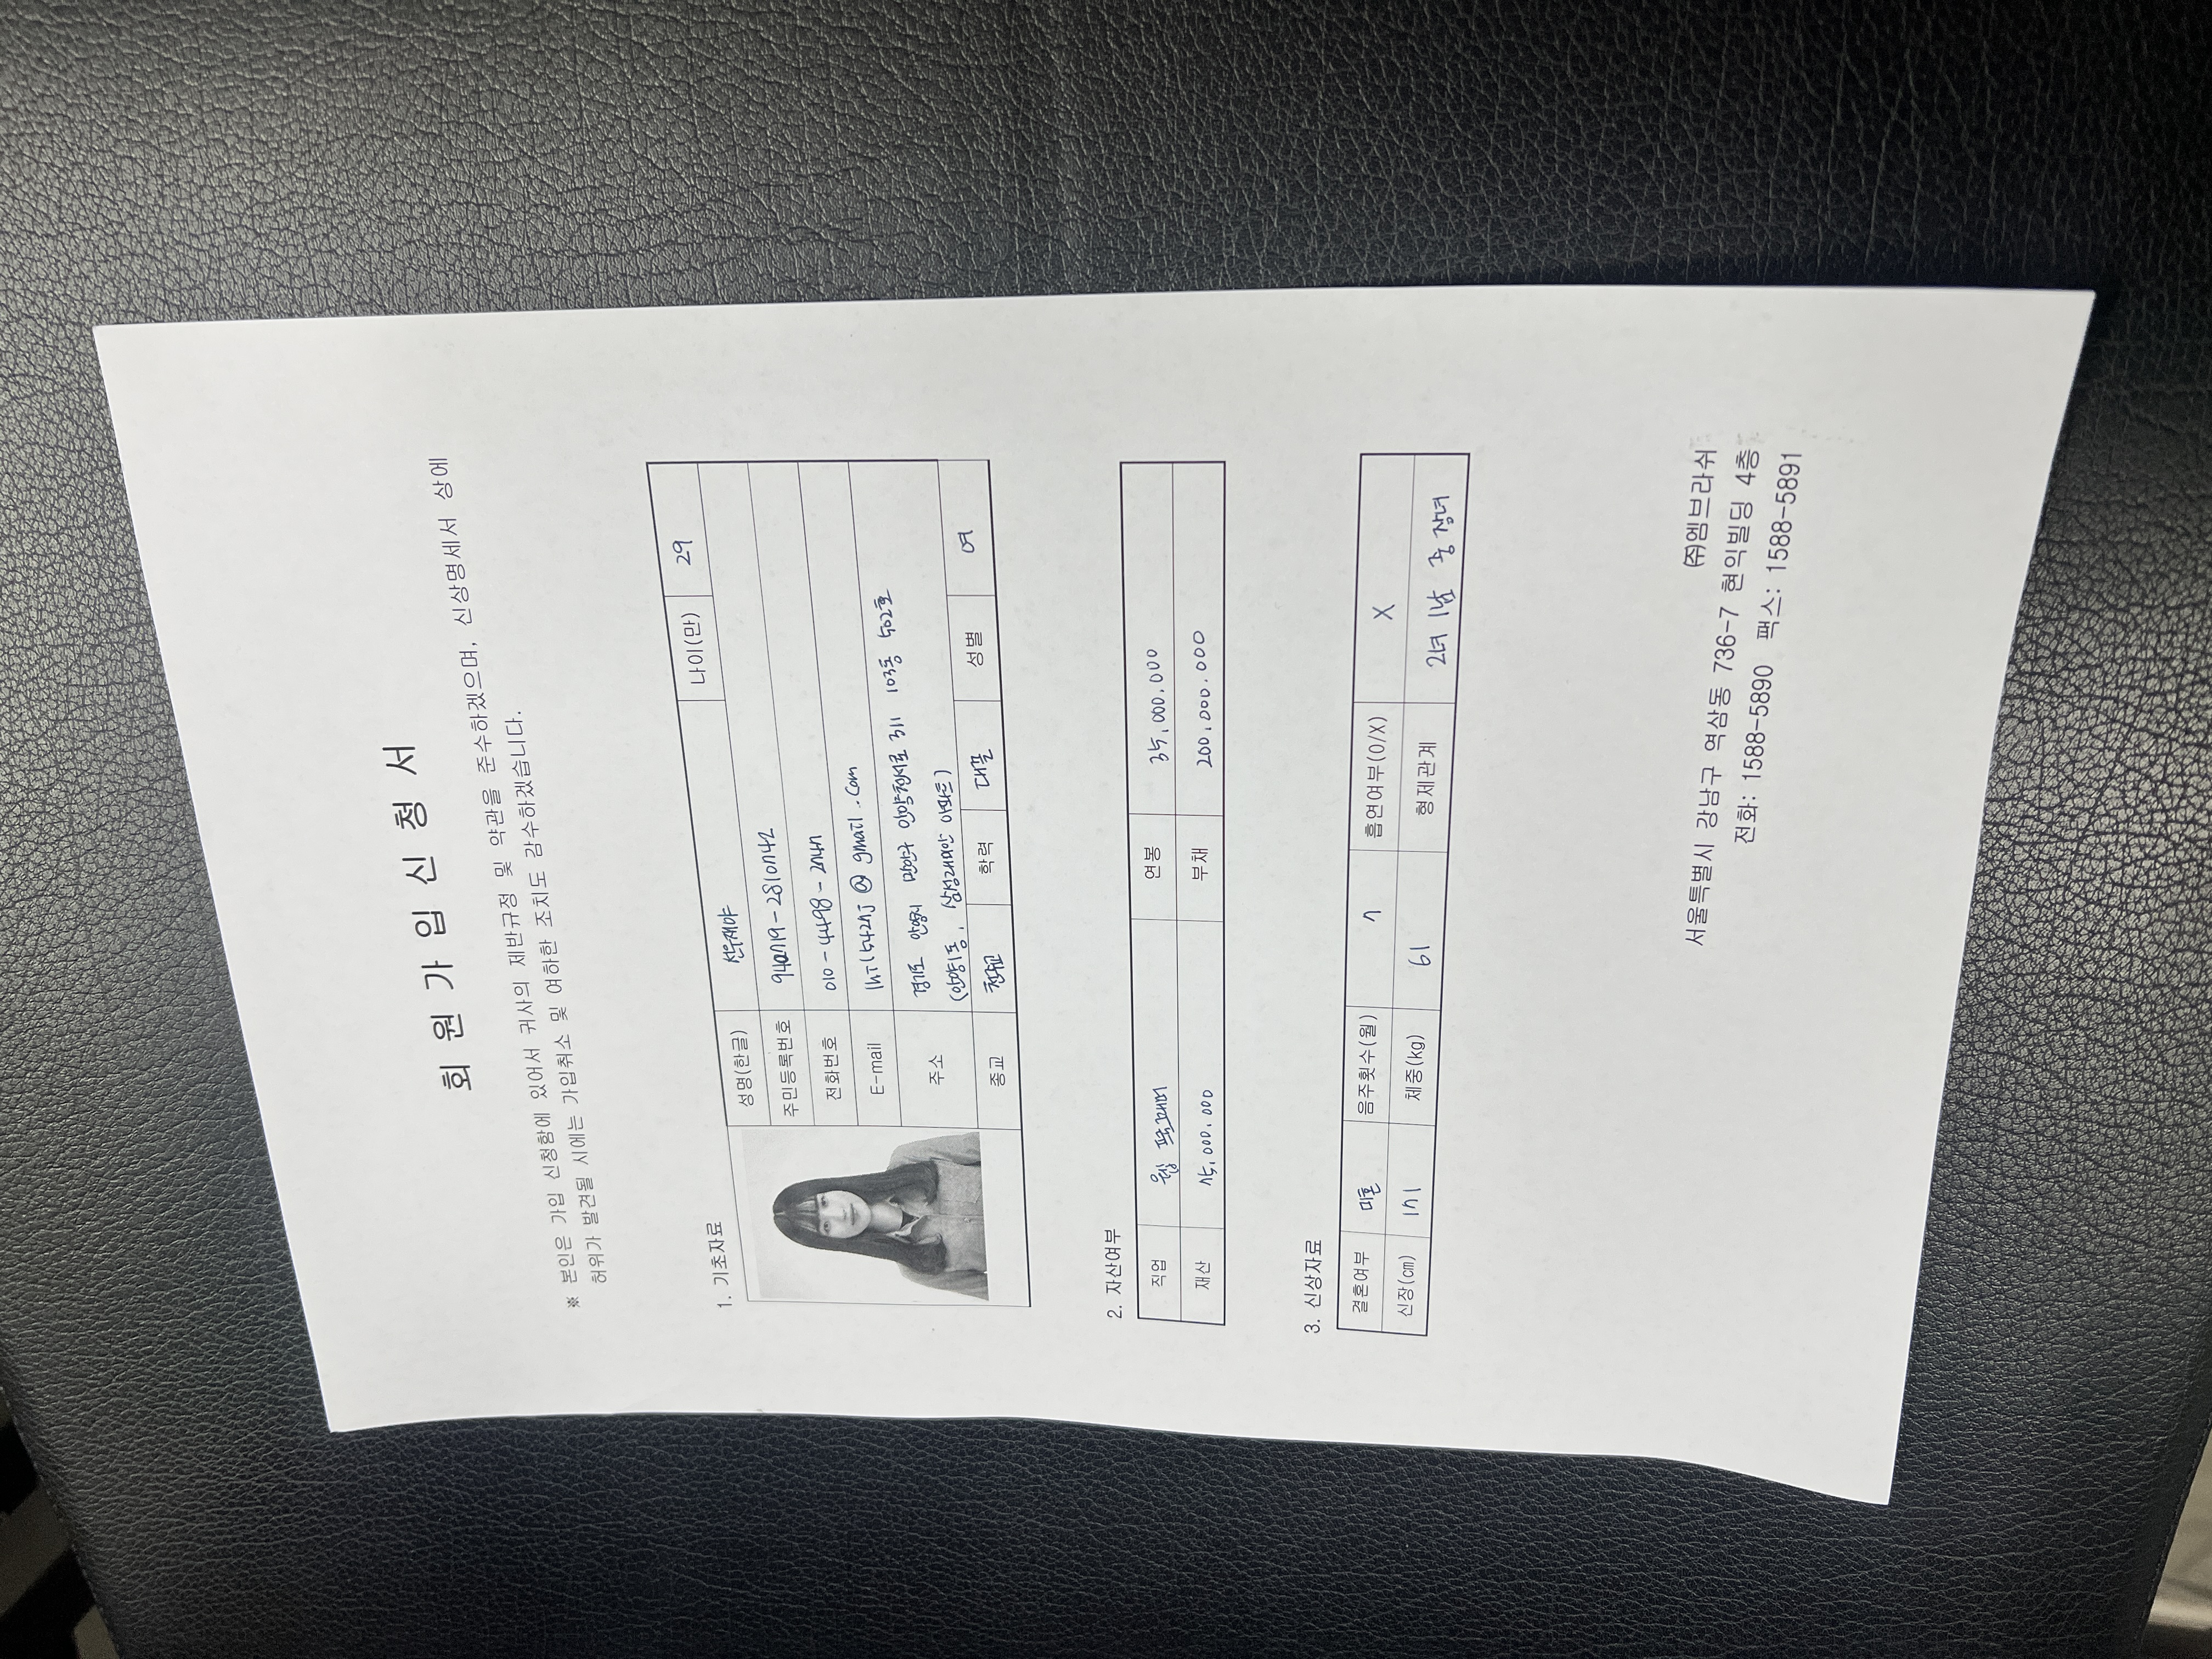 회원가입신청서
※ 본인은 가입 신청함에 있어서 귀사의 제반규정 및 약관을 준수하겠으며, 신상명세서 상에
허위가 발견될 시에는 가입취소 및 여하한 조치도 감수하겠습니다.
1. 기초자료
성명(한글) 선우재야 나이(만) 29
주민등록번호 940719-2810742
전화번호 010-4498-2747
E-mail @ gmail.com
주소 경기도 안양시 만안구 안양천서로 311 103동 502호
(안양1동, 삼성래미안 아파트)
종교 천주교 학력 대졸 성별 여
2. 자산여부
직업 웹 프로그래머 연봉 35,000,000
재산 75,000,000 부채 200,000,000
3. 신상자료
결혼여부 미혼 음주횟수(월) 7 흡연여부(O/X) X
신장(cm) 171 체중(kg) 61 형제관계 2녀 1남 중 장녀
㈜엠브라쉬
서울특별시 강남구 역삼동 736-7 현익빌딩 4층
전화: 1588-5890 팩스: 1588-5891